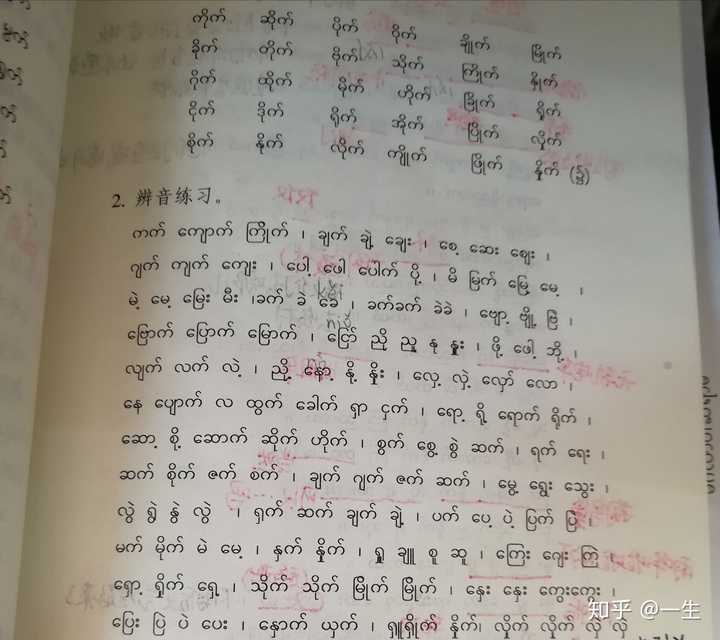 ကိုက် ဆိုက် ပိုက် ဗိုက် ချိုက် မြိုက်
ခိုက် တိုက် ဗိုက် သိုက် ကြိုက် နှိုက်
ဂိုက် ထိုက် မိုက် ဟိုက် ခြိုက် ရှိုက်
ငိုက် ဒိုက် ရိုက် အိုက် ပြိုက် လှိုက်
စိုက် နိုက် လိုက် ကျိုက် ဖြိုက် နှိုက် (၍)
2. 辨音练习。
ကက် ကျောက် ကြိုက် ၊ ချက် ချဲ့ ချေး ၊ စေ့ ဆေး ဈေး ၊
ဂျက် ကျက် ကျေး ၊ ပေါ့ ဖေါ ပေါက် ပို့ ၊ မိ မြက် မြေ့ မေ့ ၊
မဲ့ မေ့ မြေး မီး ၊ခက် ခဲ ခေ ၊ ခက်ခက် ခဲခဲ ၊ ဗျော့ ဗျို့ ဗြ ၊
ဗြောက် ပြောက် မြောက် ၊ ငြော် ညို ညု နု နှူး ၊ ဖို့ ဖေါ့ ဘို့ ၊
လျက် လက် လဲ့ ၊ ညို့ နော့ နို့ နှိုး ၊ လှေ့ လှဲ့ လှော် လော ၊
နေ ပျောက် လ ထွက် ခေါက် ရှာ ငှက် ၊ ရော့ ရို့ ရောက် ရိုက် ၊
ဆော့ စို့ ဆောက် ဆိုက် ဟိုက် ၊ စွက် စွေ့ စွဲ ဆက် ၊ ရက် ရေး ၊
ဆက် စိုက် ဇက် စက် ၊ ချက် ဂျက် ဇက် ဆက် ၊ မွေ့ ရွေး သွေး ၊
လွဲ ရွဲ နွဲ လွဲ ၊ ရှက် ဆက် ချက် ချဲ့ ၊ ပက် ပေ့ ပဲ့ ပြက် ပြဲ ၊
မက် မိုက် မဲ မေ့ ၊ နှက် နှိုက် ၊ ရှု ချူ စူ ဆူ ၊ ကြေး ဂျေး ကြ
ရှော့ ရှိုက် ရှေ့ ၊ သိုက် သိုက် မြိုက် မြိုက် ၊ နှေး နှေး ကွေးကွေး ၊
ပြေး ပြဲ ပဲ ပေး ၊ နှောက် ယှက် ၊ ရှူရှိုက် နှိုက်၊ လှိုက် လှိုက် လှဲ လှဲ
知乎 @一生